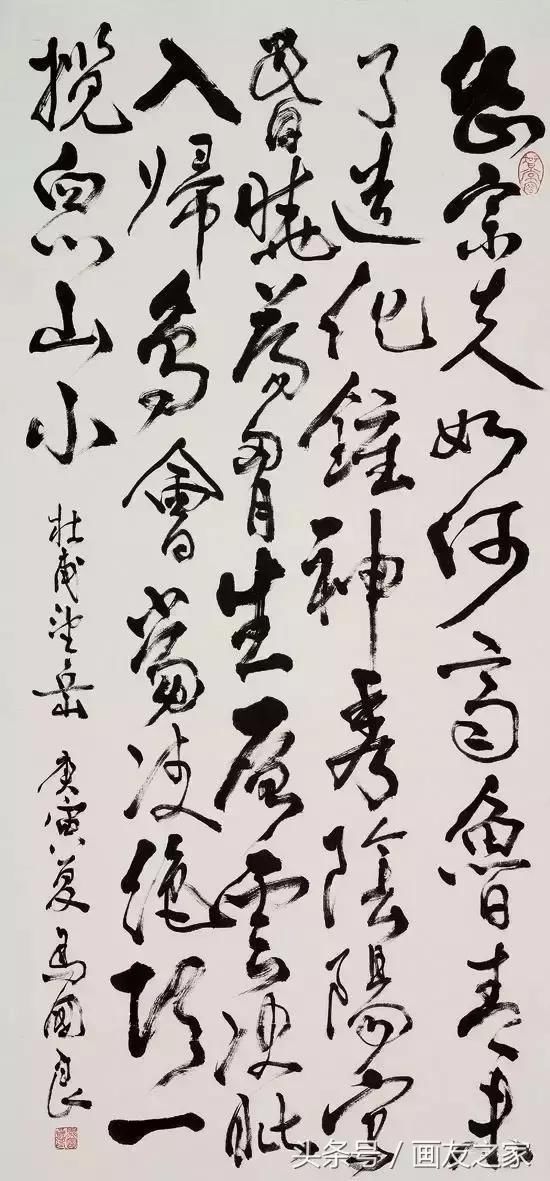 岱宗夫如何齊魯青未
了造化鐘神秀陰陽割
昏曉蕩胷生層雲决眦
入歸鳥會當凌絶頂一
攬衆山小
杜甫望岳 庚寅夏 馬國良
头条号 / 画友之家